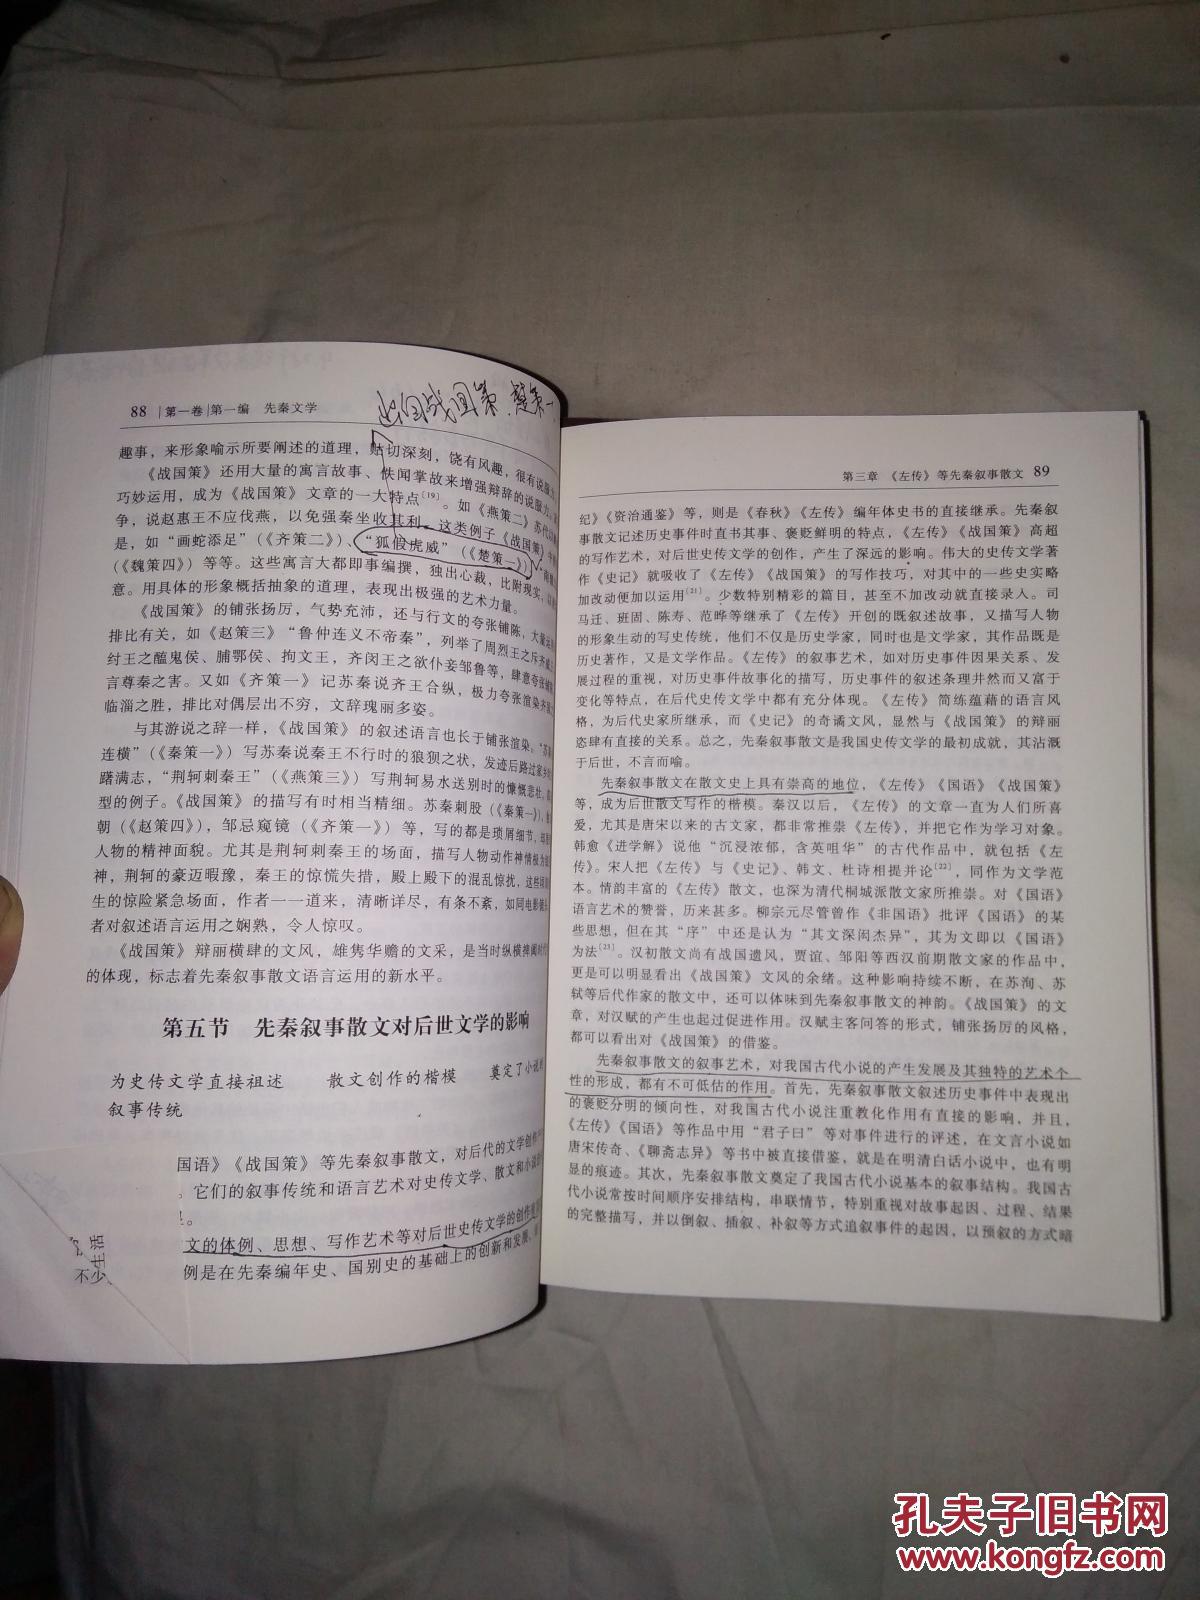 88 | 第一卷 | 第一编 先秦文学
出自战国策.楚策一
趣事，来形象喻示所要阐述的道理，贴切深刻，饶有风趣，很有说服力。
《战国策》还用大量的寓言故事、佚闻掌故来增强辩辞的说服力。
巧妙运用，成为《战国策》文章的一大特点〔19〕。如《燕策二》苏代以
争，说赵惠王不应伐燕，以免强秦坐收其利。这类例子《战国策》中
是，如“画蛇添足”（《齐策二》）、“狐假虎威”（《楚策一》）、“南辕
（《魏策四》）等等。这些寓言大都即事编撰，独出心裁，比附现实，以
意。用具体的形象概括抽象的道理，表现出极强的艺术力量。
《战国策》的铺张扬厉，气势充沛，还与行文的夸张铺陈，大量运用
排比有关，如《赵策三》“鲁仲连义不帝秦”，列举了周烈王之斥齐威王
纣王之醢鬼侯、脯鄂侯、拘文王，齐闵王之欲仆妾邹鲁等，肆意夸张铺
言尊秦之害。又如《齐策一》记苏秦说齐王合纵，极力夸张渲染齐国
临淄之胜，排比对偶层出不穷，文辞瑰丽多姿。
与其游说之辞一样，《战国策》的叙述语言也长于铺张渲染。“苏秦
连横”（《秦策一》）写苏秦说秦王不行时的狼狈之状，发迹后路过家乡
踌躇满志，“荆轲刺秦王”（《燕策三》）写荆轲易水送别时的慷慨悲壮，
型的例子。《战国策》的描写有时相当精细。苏秦刺股（《秦策一》），
朝（《赵策四》），邹忌窥镜（《齐策一》）等，写的都是琐屑细节，却
人物的精神面貌。尤其是荆轲刺秦王的场面，描写人物动作神情极为
神，荆轲的豪迈暇豫，秦王的惊慌失措，殿上殿下的混乱惊扰，这些
生的惊险紧急场面，作者一一道来，清晰详尽，有条不紊，如同电影镜头
者对叙述语言运用之娴熟，令人惊叹。
《战国策》辩丽横肆的文风，雄隽华赡的文采，是当时纵横捭阖时代
的体现，标志着先秦叙事散文语言运用的新水平。
第五节 先秦叙事散文对后世文学的影响
为史传文学直接祖述 散文创作的楷模 奠定了小说的
叙事传统
国语》《战国策》等先秦叙事散文，对后代的文学创作产
。它们的叙事传统和语言艺术对史传文学、散文和小说的
。
文的体例、思想、写作艺术等对后世史传文学的创作
例是在先秦编年史、国别史的基础上的创新和发展，
生活
不少
第三章 《左传》等先秦叙事散文 89
纪》《资治通鉴》等，则是《春秋》《左传》编年体史书的直接继承。先秦叙
事散文记述历史事件时直书其事、褒贬鲜明的特点，《左传》《战国策》高超
的写作艺术，对后世史传文学的创作，产生了深远的影响。伟大的史传文学著
作《史记》就吸收了《左传》《战国策》的写作技巧，对其中的一些史实略
加改动便加以运用〔21〕。少数特别精彩的篇目，甚至不加改动就直接录入。司
马迁、班固、陈寿、范晔等继承了《左传》开创的既叙述故事，又描写人物
的形象生动的写史传统，他们不仅是历史学家，同时也是文学家，其作品既是
历史著作，又是文学作品。《左传》的叙事艺术，如对历史事件因果关系、发
展过程的重视，对历史事件故事化的描写，历史事件的叙述条理井然而又富于
变化等特点，在后代史传文学中都有充分体现。《左传》简练蕴藉的语言风
格，为后代史家所继承，而《史记》的奇谲文风，显然与《战国策》的辩丽
恣肆有直接的关系。总之，先秦叙事散文是我国史传文学的最初成就，其沾溉
于后世，不言而喻。
先秦叙事散文在散文史上具有崇高的地位，《左传》《国语》《战国策》
等，成为后世散文写作的楷模。秦汉以后，《左传》的文章一直为人们所喜
爱，尤其是唐宋以来的古文家，都非常推崇《左传》，并把它作为学习对象。
韩愈《进学解》说他“沉浸浓郁，含英咀华”的古代作品中，就包括《左
传》。宋人把《左传》与《史记》、韩文、杜诗相提并论〔22〕，同作为文学范
本。情韵丰富的《左传》散文，也深为清代桐城派散文家所推崇。对《国语》
语言艺术的赞誉，历来甚多。柳宗元尽管曾作《非国语》批评《国语》的某
些思想，但在其“序”中还是认为“其文深闳杰异”，其为文即以《国语》
为法〔23〕。汉初散文尚有战国遗风，贾谊、邹阳等西汉前期散文家的作品中，
更是可以明显看出《战国策》文风的余绪。这种影响持续不断，在苏洵、苏
轼等后代作家的散文中，还可以体味到先秦叙事散文的神韵。《战国策》的文
章，对汉赋的产生也起过促进作用。汉赋主客问答的形式，铺张扬厉的风格，
都可以看出对《战国策》的借鉴。
先秦叙事散文的叙事艺术，对我国古代小说的产生发展及其独特的艺术个
性的形成，都有不可低估的作用。首先，先秦叙事散文叙述历史事件中表现出
的褒贬分明的倾向性，对我国古代小说注重教化作用有直接的影响，并且，
《左传》《国语》等作品中用“君子曰”等对事件进行的评述，在文言小说如
唐宋传奇、《聊斋志异》等书中被直接借鉴，就是在明清白话小说中，也有明
显的痕迹。其次，先秦叙事散文奠定了我国古代小说基本的叙事结构。我国古
代小说常按时间顺序安排结构，串联情节，特别重视对故事起因、过程、结果
的完整描写，并以倒叙、插叙、补叙等方式追叙事件的起因，以预叙的方式暗
孔夫子旧书网
www.kongfz.com